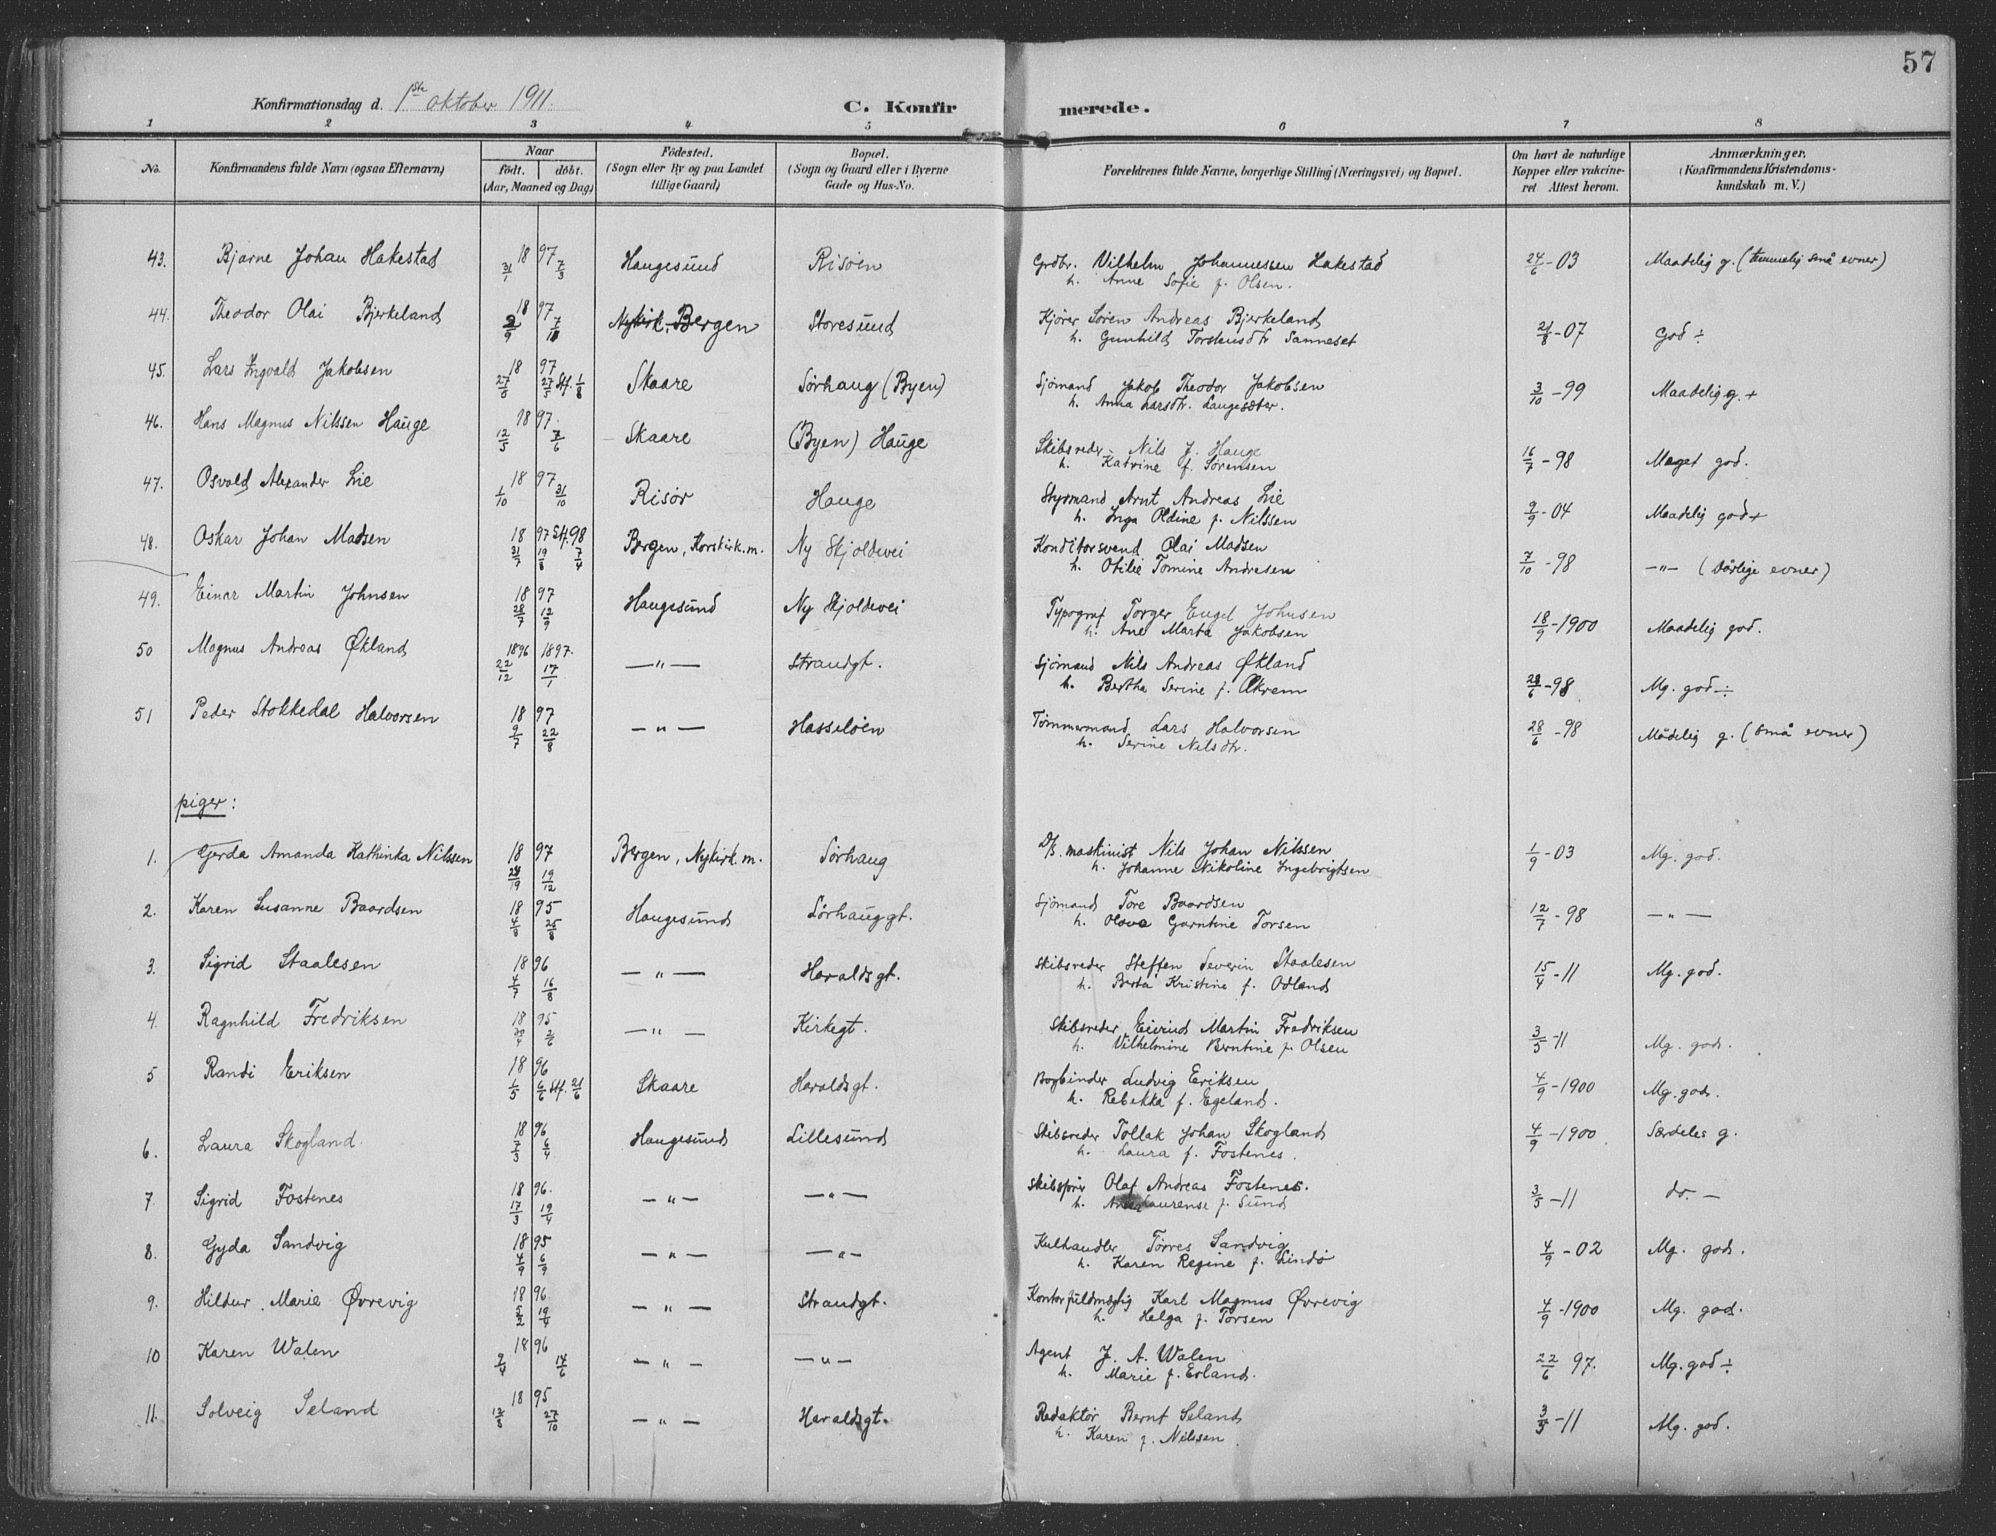 57
Konfirmationsdag d. 1ste oktober 1911. C. Konfirmerede.
1 2 3 4 5 6 7 8
No. Konfirmandens fulde Navn (ogsaa Efternavn) Naar födt. döbt. (Aar, Maaned og Dag) Födested. (Sogn eller By og paa Landet tillige Gaard) Bopæl. (Sogn og Gaard eller i Byerne Gade og Hus-No. Forældrenes fulde Navne, borgerlige Stilling (Næringsvei) og Bopæl. Om havt de naturlige Kopper eller vakcineret Attest herom. Anmærkninger. (Konfirmandens Kristendomskundskab m. V.)
43. Bjarne Johan Hakestad 1897 31/1 7/3 Haugesund Risöen Grdbr. Vilhelm Johannessen Hakestad 24/6-03 Maadelig g. (temmelig små evner)
h. Anne Sofie f. Olsen.
44. Theodor Olai Bjerkeland 1897 Nykirk, Bergen Storesund Kjører Søren Andreas Bjerkeland 21/8-07 God ÷
h. Gunhild Torstensdtr Sanneset
45. Lars Ingvald Jakobsen 1897 27/5 Stf. 1/8 Skaare Sørhaug (Byen) Sjømand Jakob Theodor Jakobsen 3/10-99 Maadelig g. +
h. Anna Larsdtr. Langesæter.
46. Hans Magnus Nilssen Hauge 1897. 12/5 7/6 Skaare (Byen) Hauge Skibsreder Nils J. Hauge 16/7-98 Meget god.
h. Katrine f. Sørensen
47. Osvald Alexander Lie 1897 1/10 31/10 Risør Hauge Styrmand Arnt Andreas Lie 9/9-04 Maadelig god +
h. Inga Oldine f. Nilssen
48. Oskar Johan Madsen 1897 Stf. 98 31/7 19/8 7/4 Bergen, Korskirk. m. Ny Skjoldevei Konditorsvend Olai Madsen 7/10-98 —"— (dårlige evner)
h. Otilie Tomine Andresen
49. Einar Martin Johnsen 1897 28/7 12/9 Haugesund Ny Skjoldevei Typograf Torger Engel Johnsen 18/9-1900 Maadelig god.
h. Ane Marta Jakobsen
50 Magnus Andreas Økland 1896 1897. 22/12 17/1 —"— Strandgt. Sjømand Nils Andreas Økland 28/6-98 Mg. god ÷
h. Bertha Serine f. Økrem
51 Peder Stokkedal Halvorsen 1897 9/7 22/8 —"— Hasseløen Tømmermand Lars Halvorsen 28/6-98 Mådelig g. (små evner)
h. Serine Nilsdtr.
piger:
1. Gerda Amanda Kathinka Nilssen 1897 19/12 Bergen, Nykirk. m. Sørhaug D/S. maskinist Nils Johan Nilssen 1/9-03 Mg. god.
h. Johanne Nikoline Ingebrigtsen
2. Karen Susanne Baardsen 1895 4/8 25/8 Haugesund Sørhauggt. Sjømand Tore Baardsen 12/7-98 —"—
h. Olava Garntine Torsen
3. Sigrid Staalesen 1896 4/7 16/8 —"— Haraldsgt. Skibsreder Steffen Severin Staalesen 15/4-11 Mg. god.
h. Berta Kristine f. Odland
4. Ragnhild Fredriksen 1895 29/4 2/6 —"— Kirkegt. Skibsreder Eivind Martin Fredriksen 3/5-11 Mg. god.
h. Vilhelmine Berntine f. Olsen
5 Randi Eriksen 1896 1/5 6/6 Stf. 21/6 Skaare Haraldsgt. Bogbinder Ludvig Eriksen 4/9-1900 Mg. god.
h. Rebekka f. Egeland.
6. Laura Skogland. 1896 7/3 6/4 Haugesund Lillesund Skibsreder Tollak Johan Skogland 4/9-1900 Særdeles g.
h. Laura f. Fostenes.
7. Sigrid Fostenes 1896. 17/3 19/4 —"— —"— Skibsfører Olaf Andreas Fostenes. 3/5-11 do. —
h. Laurense f. Sund
8. Gyda Sandvig 1895 4/9 6/9 —"— —"— Kulhandler Tørres Sandvig 4/9-02 Mg. god.
h. Karen Regine f. Lindø
9. Hildur Marie Øvrevig 1896. 5/2 19/4 —"— Strandgt. Kontorfuldmægtig Karl Magnus Øvrevig 4/9-1900 Mg. god.
h. Helga f. Torsen
10 Karen Walen 1896 9/4 14/6 —"— —"— Agent J. A. Walen 22/6 97. Mg. god ÷
h. Marie f. Erland.
11. Solveig Seland 1895 12/8 27/10 —"— Haraldsgt. Redaktør Bernt Seland 3/5-11 Mg. god.
h. Karen f. Nilssen